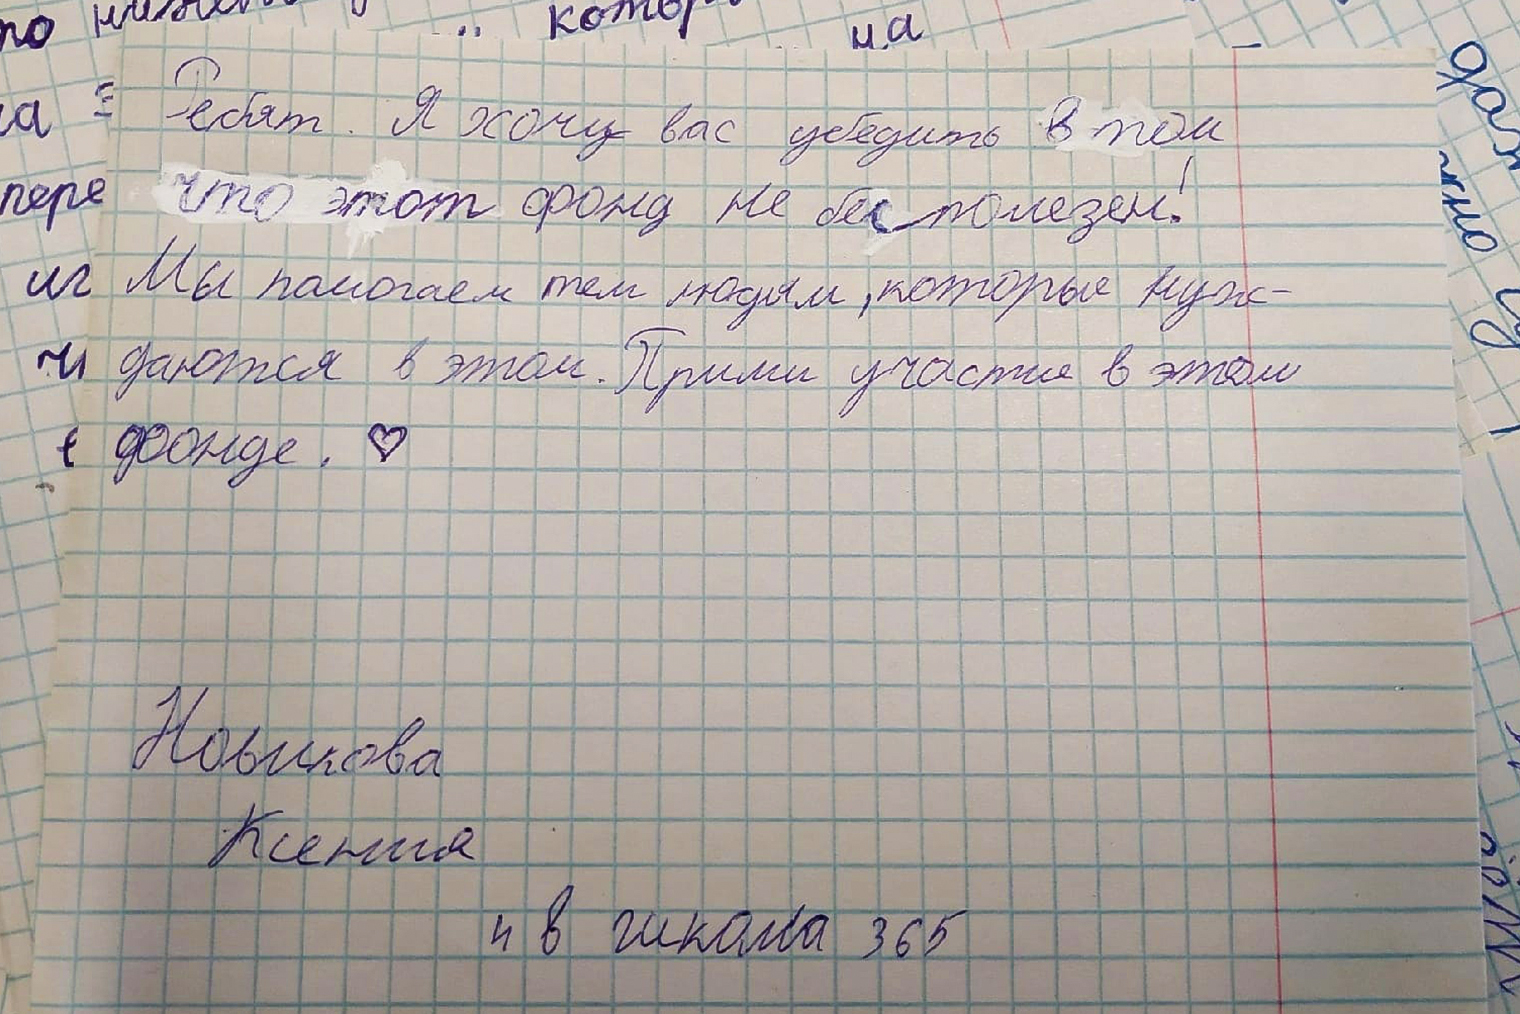 по
которы
на
Ребят. Я хочу вас убедить в том
что этот фонд не бесполезен!
Мы помогаем тем людям, которые нуж-
даются в этом. Прими участие в этом
фонде. ♡
Новикова
Ксения
4 в школа 365
пере